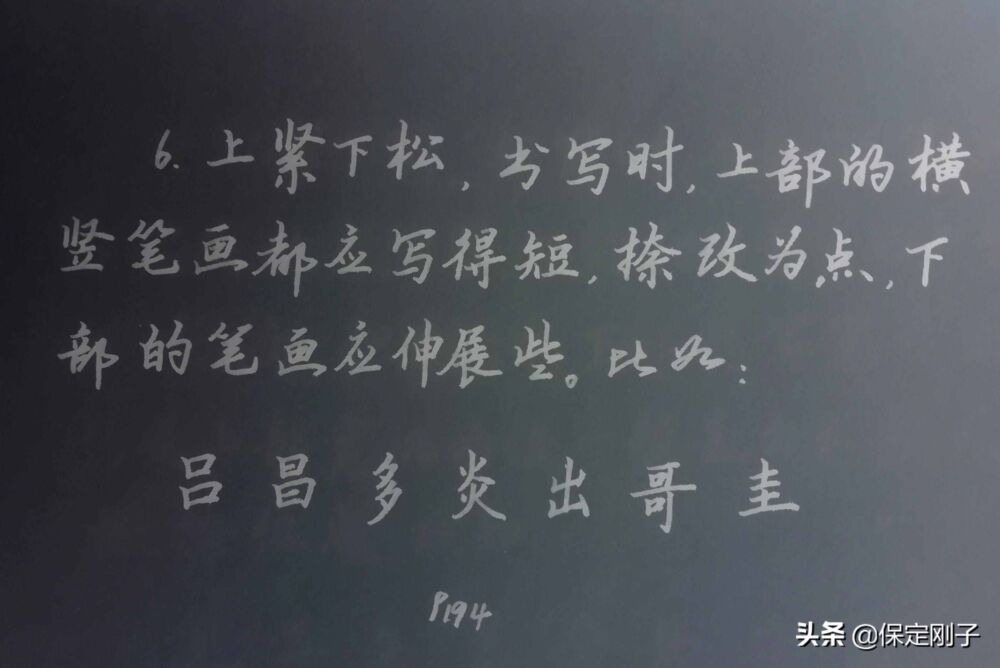 6. 上紧下松, 书写时, 上部的横
竖笔画都应写得短, 捺改为点, 下
部的笔画应伸展些。比如:
吕 昌 多 炎 出 哥 圭
P194
头条 @保定刚子